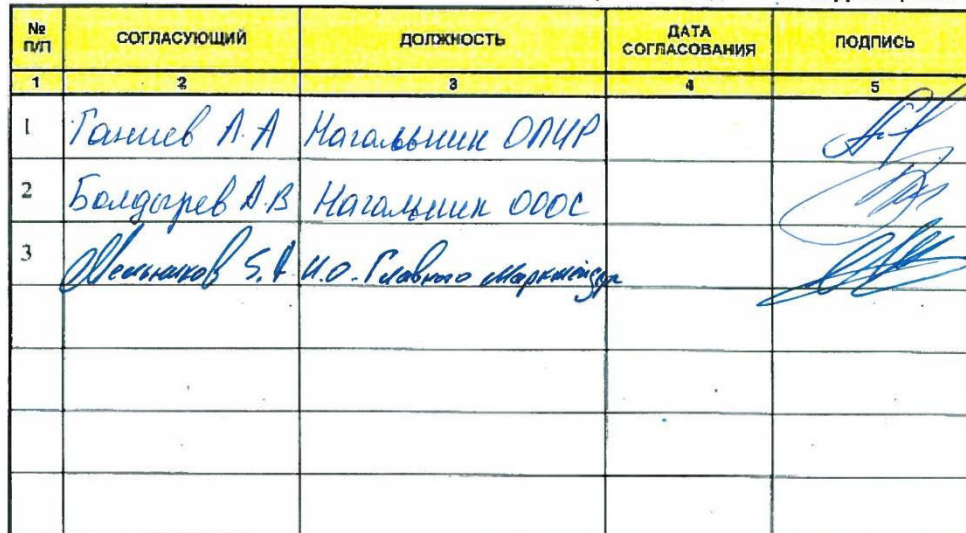 № п/п СОГЛАСУЮЩИЙ ДОЛЖНОСТЬ ДАТА СОГЛАСОВАНИЯ ПОДПИСЬ
1 2 3 4 5
1 Ганиев А.А Начальник ОПИР
2 Болдырев А.В Начальник ОООС
3 Мельников И.О. Главного Маркшейдера